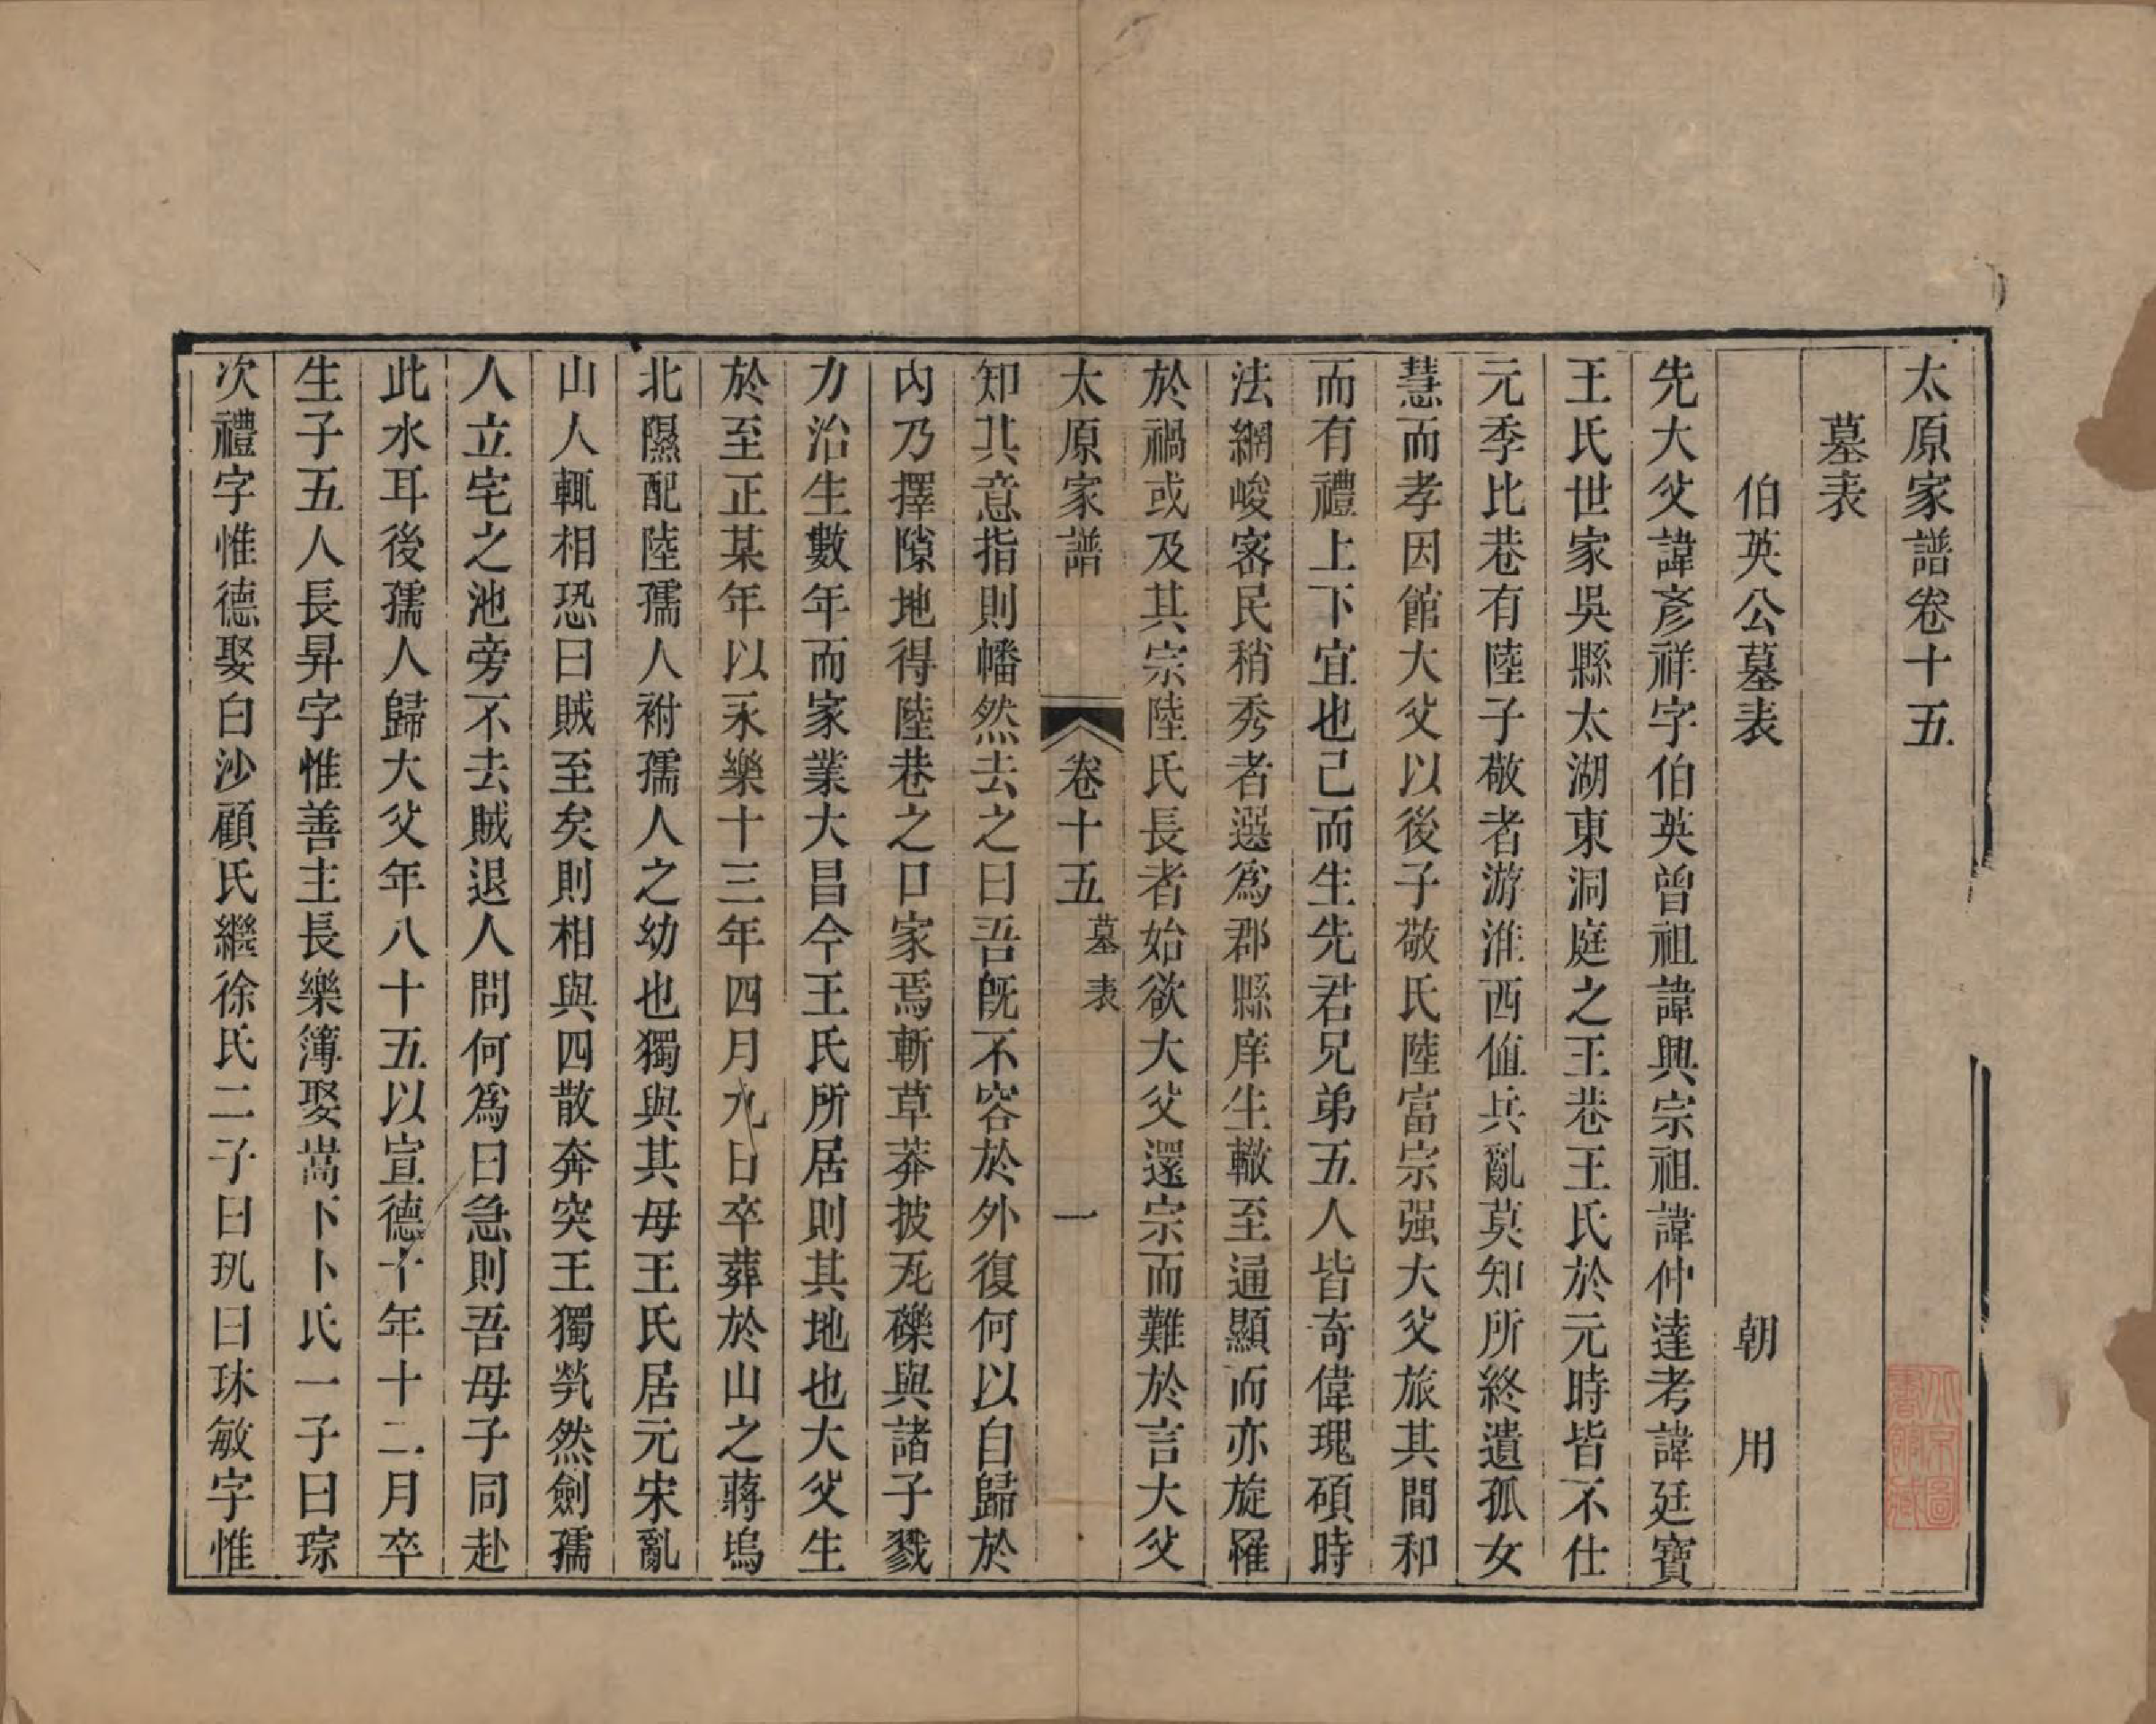 太原家譜卷十五
墓表
伯英公墓表　朝用
先大父諱彥祥字伯英曾祖諱興宗祖諱仲達考諱廷寶
王氏世家吳縣太湖東洞庭之王巷王氏於元時皆不仕
元季比巷有陸子敬者游淮西値兵亂莫知所終遺孤女
慧而孝因館大父以後子敬氏陸富宗强大父旅其間和
而有禮上下宜也已而生先君兄弟五人皆奇偉瑰碩時
法網峻宻民稍秀者選爲郡縣庠生轍至通顯而亦旋罹
於禍或及其宗陸氏長者始欲大父還宗而難於言大父
太原家譜　卷十五　墓表　一
知其意指則幡然去之曰吾旣不容於外復何以自歸於
內乃擇隙地得陸巷之口家焉斬草莽披瓦礫與諸子戮
力治生數年而家業大昌今王氏所居則其地也大父生
於至正某年以永樂十三年四月九日卒葬於山之蔣塢
北隰配陸孺人祔孺人之幼也獨與其母王氏居元宋亂
山人輒相恐曰賊至矣則相與四散奔突王獨煢然劍孺
人立宅之池旁不去賊退人問何爲曰急則吾母子同赴
此水耳後孺人歸大父年八十五以宣德十年十二月卒
生子五人長昇字惟善主長樂簿娶嵩下卜氏一子曰琮
次禮字惟德娶白沙顧氏繼徐氏二子曰玑曰琳敏字惟